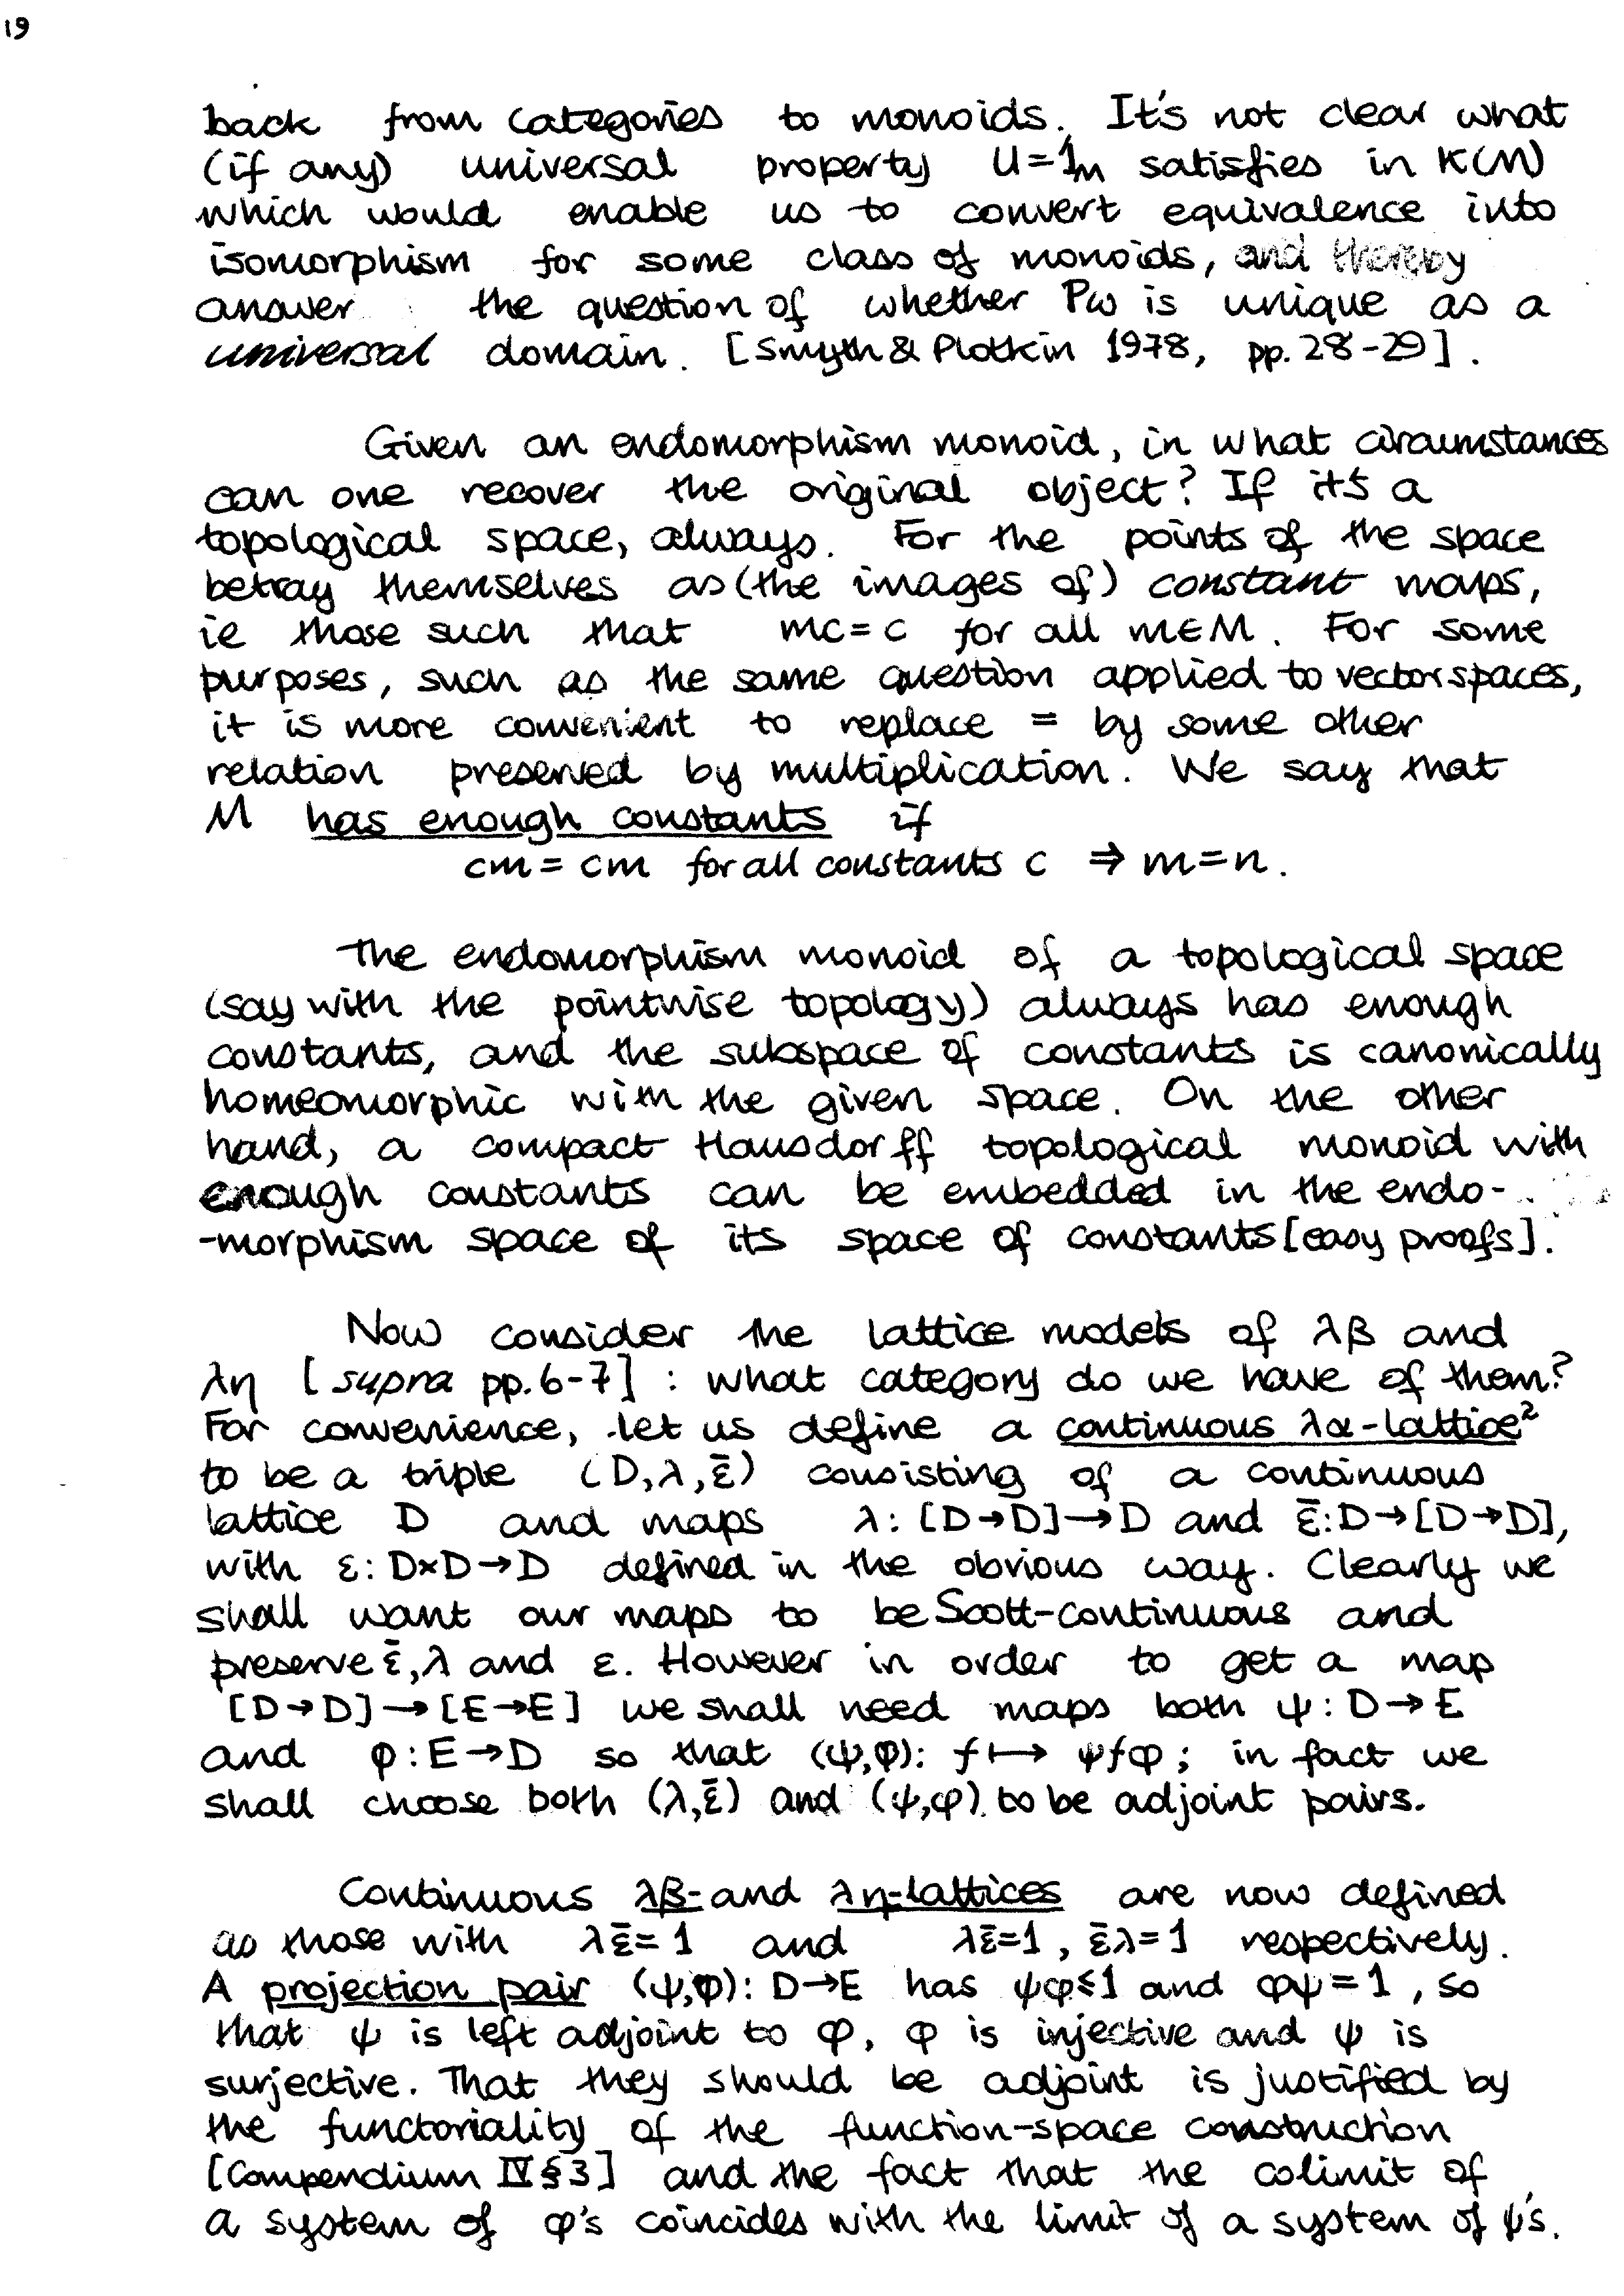 19
back from categories to monoids. It's not clear what
(if any) universal property U=1ₘ satisfies in K(M)
which would enable us to convert equivalence into
isomorphism for some class of monoids, and thereby
answer the question of whether Pω is unique as a
universal domain. [Smyth & Plotkin 1978, pp. 28-29].
Given an endomorphism monoid, in what circumstances
can one recover the original object? If it's a
topological space, always. For the points of the space
betray themselves as (the images of) constant maps,
ie those such that mc=c for all m∈M. For some
purposes, such as the same question applied to vector spaces,
it is more convenient to replace = by some other
relation preserved by multiplication. We say that
M has enough constants if
cm = cm for all constants c ⇒ m=n.
The endomorphism monoid of a topological space
(say with the pointwise topology) always has enough
constants, and the subspace of constants is canonically
homeomorphic with the given space. On the other
hand, a compact Hausdorff topological monoid with
enough constants can be embedded in the endo-
-morphism space of its space of constants [easy proofs].
Now consider the lattice models of λβ and
λη [supra pp. 6-7] : what category do we have of them?
For convenience, let us define a continuous λα-lattice²
to be a triple (D,λ,ε̄) consisting of a continuous
lattice D and maps λ: [D→D]→D and ε̄:D→[D→D],
with ε: D×D→D defined in the obvious way. Clearly we
shall want our maps to be Scott-continuous and
preserve ε̄,λ and ε. However in order to get a map
[D→D]→[E→E] we shall need maps both ψ:D→E
and φ:E→D so that (ψ,φ): f↦ ψfφ ; in fact we
shall choose both (λ,ε̄) and (ψ,φ) to be adjoint pairs.
Continuous λβ- and λη-lattices are now defined
as those with λε̄=1 and λε̄=1, ε̄λ=1 respectively.
A projection pair (ψ,φ): D→E has ψφ≤1 and φψ=1, so
that ψ is left adjoint to φ, φ is injective and ψ is
surjective. That they should be adjoint is justified by
the functoriality of the function-space construction
[Compendium IV§3] and the fact that the colimit of
a system of φ's coincides with the limit of a system of ψ's.